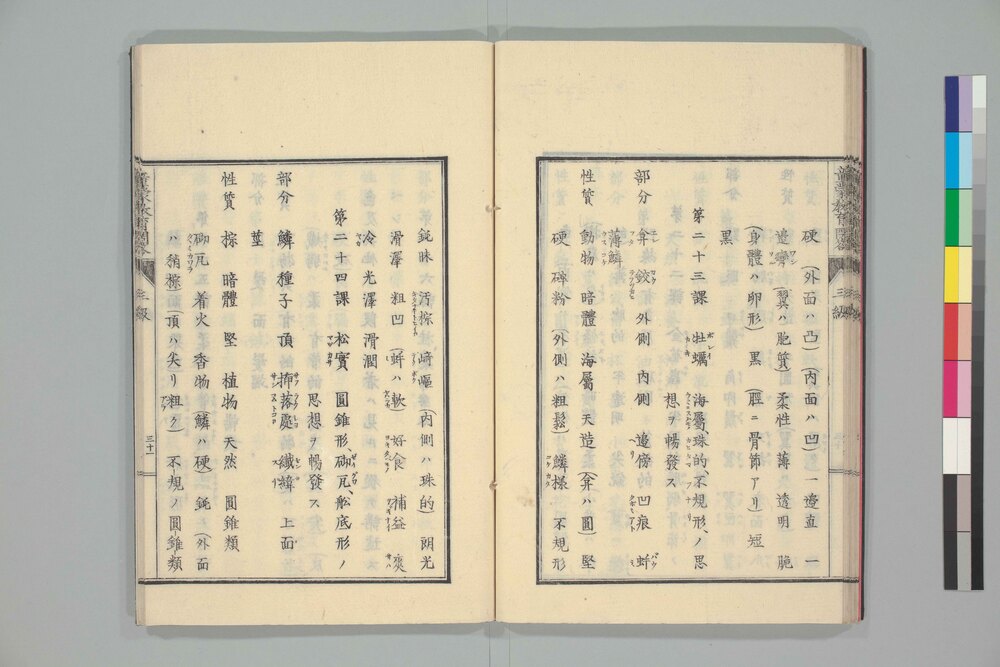 硬 (外面ハ凸) (内面ハ凹) 一邉直 一
邉彎 (翼ハ胞箕) 柔性 薄 透明 脆
(身體ハ卵形) 黒 (脛ニ骨節アリ) 短
黒
第二十三課 牡蠣 海屬、珠的、不規形、ノ思
想ヲ暢發ス
部分 弇 鉸 外側 内側 邉傍 凹痕 蚌
薄鱗
性質 動物 暗體 海屬 天造 (弇ハ圓) 堅
硬 碑粉 (外側ハ粗鬆) 鱗様 不規形
鈍昧 汚棕 﨑嶇 (内側ハ珠的) 閃光
滑澤 粗凹 (蚌ハ軟) 好食 補益 爽
冷 光澤 滑潤
第二十四課 松實 圓錐形 砌瓦、舩底形ノ
思想ヲ暢發ス
部分 鱗 種子 首 頂 揷落處 纎緯 上面
莖
性質 棕 暗體 堅 植物 天然 圓錐類
砌瓦 着火 香物 (鱗ハ硬) 鈍 (外面
ハ稍棕) (頂ハ尖リ粗ク) 不規ノ圓錐類
三級
三十一